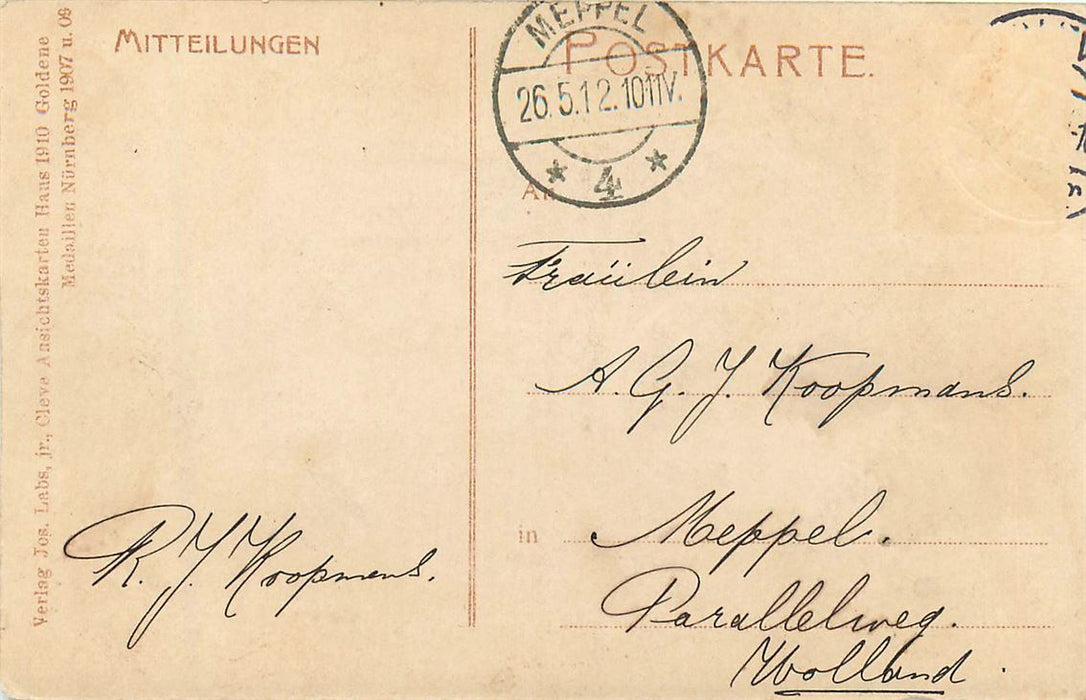 MITTEILUNGEN
POSTKARTE.
MEPPEL
26.5.12.10-11V.
* 4 *
An
Fräulein
A. G. J. Koopmans.
in Meppel.
Parallelweg.
Holland.
R. J. Koopmans.
Verlag Jos. Labs, jr., Cleve Ansichtskarten Haus 1910 Goldene
Medaillen Nürnberg 1907 u. 09